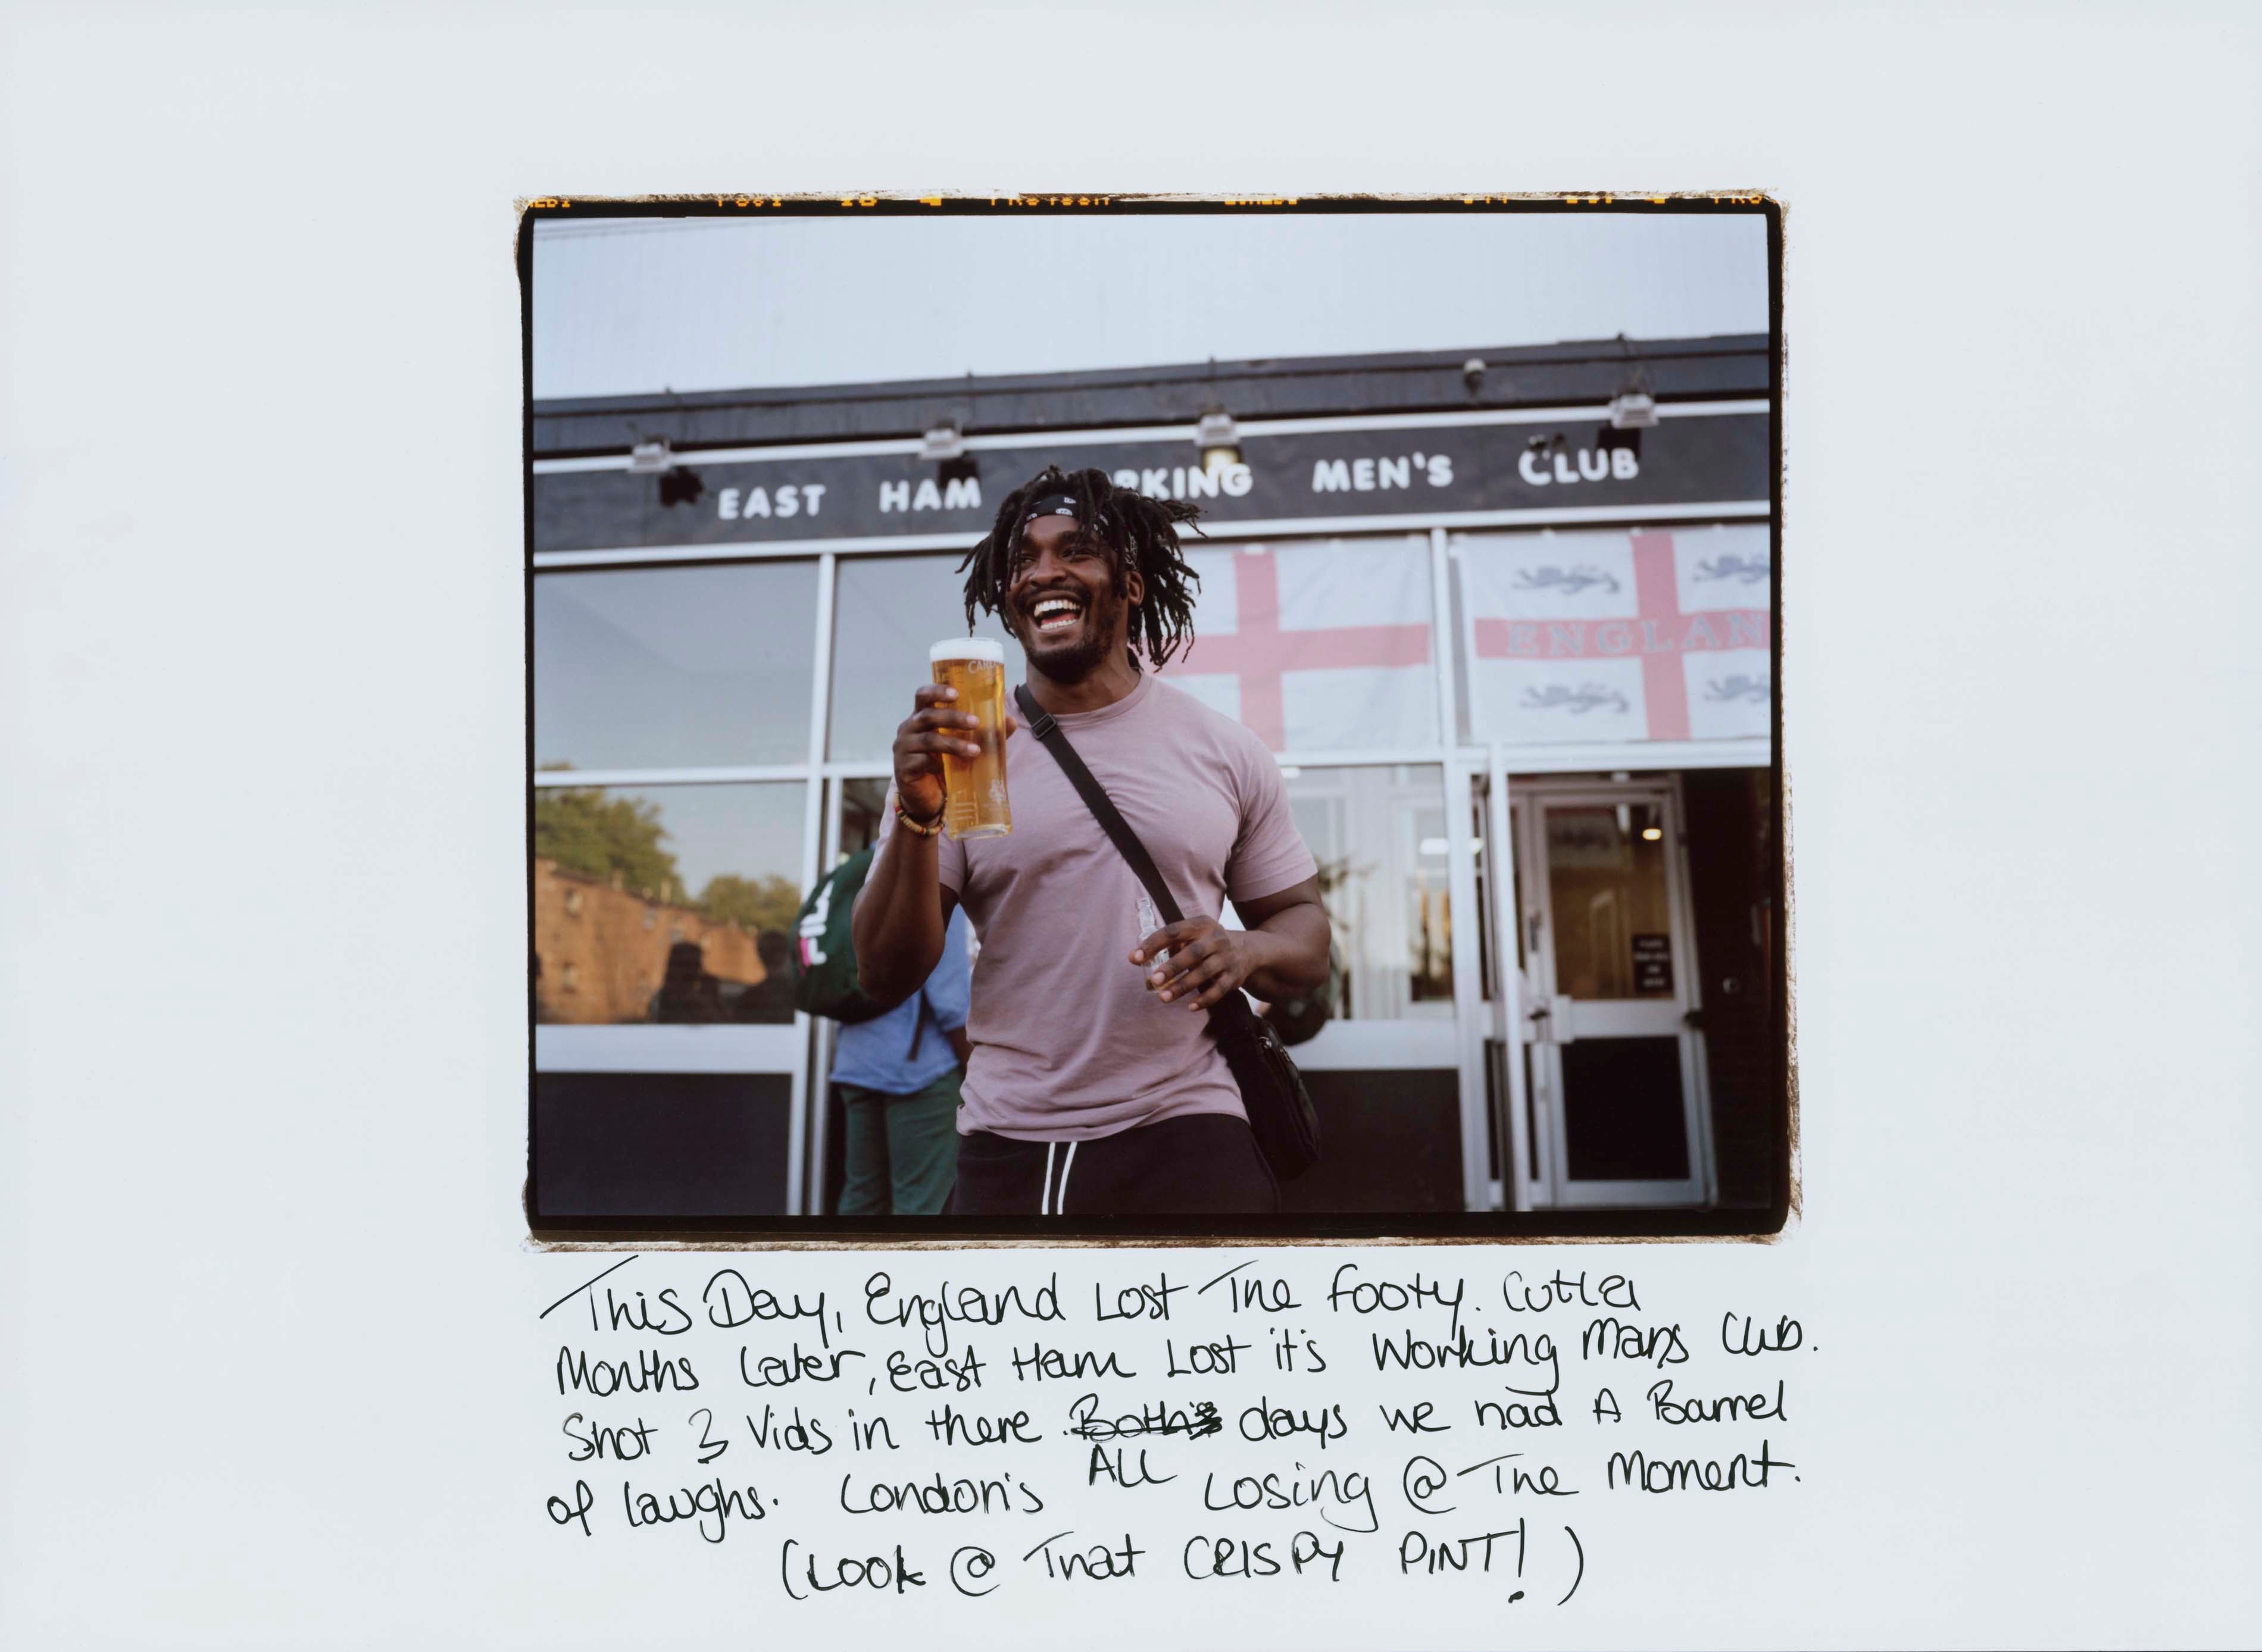 EAST HAM RKING MEN'S CLUB
ENGLAN
CARL
FILA
This Day, England Lost The footy. Cutla
Months later, East Ham Lost it's Working Mans Club.
Shot 3 Vids in there. days we had A Barrel
ALL
of laughs. London's Losing @ The Moment.
(Look @ That CRISPY PINT!)